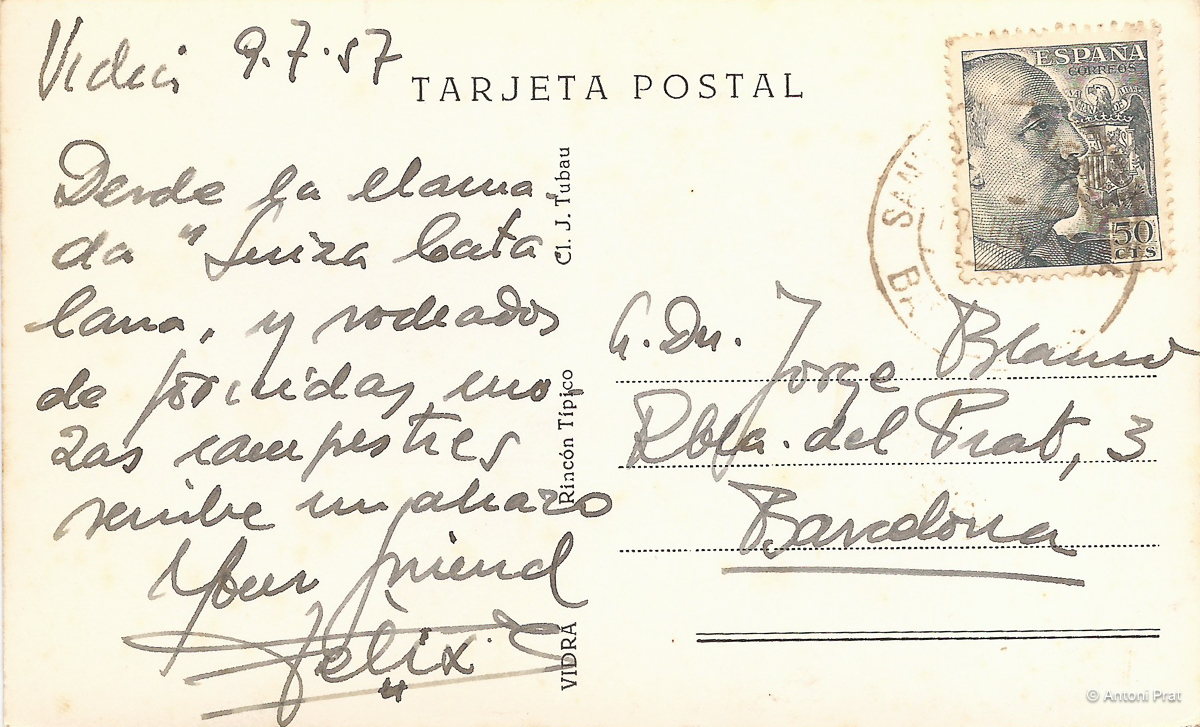 Vidrá 9.7.57
TARJETA POSTAL
Desde la llama-
da "Suiza Cata
lana, y rodeados
de fornidas mo-
zas campestres
recibe un abrazo
Your friend
Felix
VIDRÁ Rincón Típico Cl. J. Tubau
ESPAÑA
CORREOS
50
CTS
SAN
BA
A. Dn. Jorge Blanco
Rbla. del Prat, 3
Barcelona
© Antoni Prat